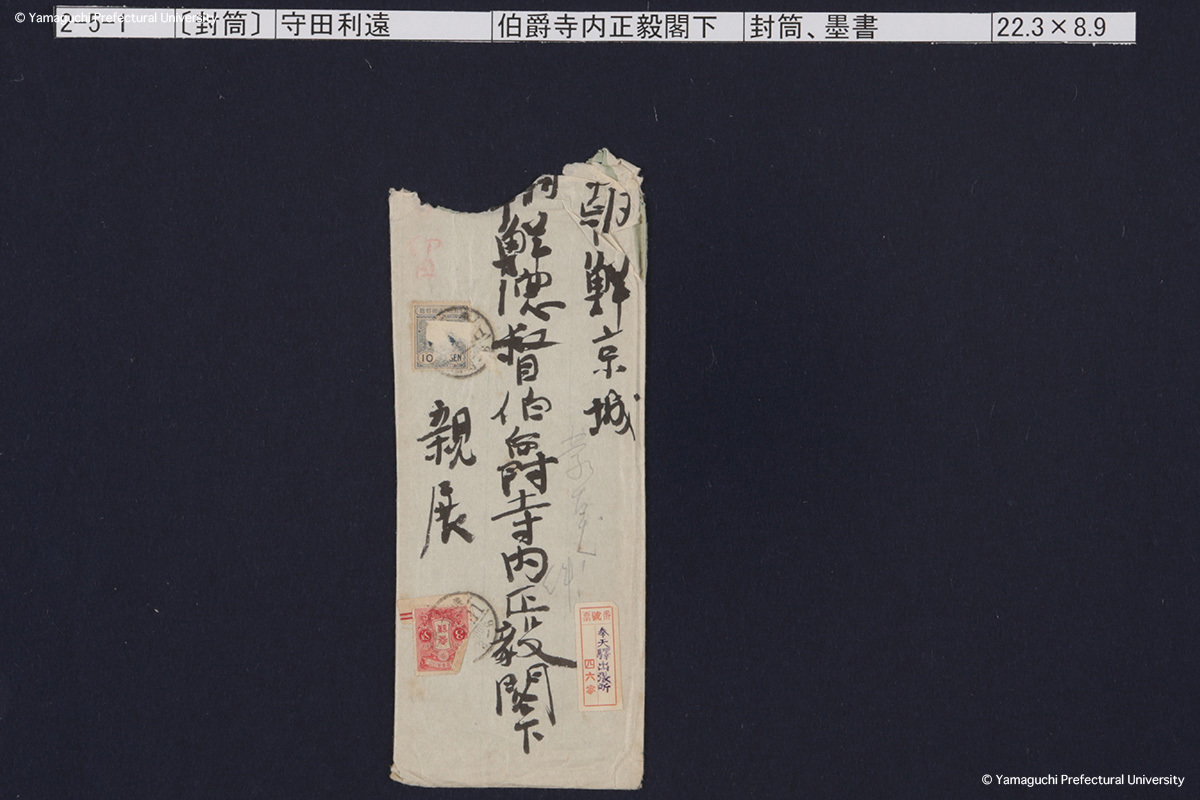 © Yamaguchi Prefectural University
2-5-1 〔封筒〕 守田利遠 伯爵寺内正毅閣下 封筒、墨書 22.3×8.9
朝鮮京城
朝鮮總督伯爵寺内正毅閣下
親展
10 SEN
番號票
奉天驛出張所
四六零
© Yamaguchi Prefectural University